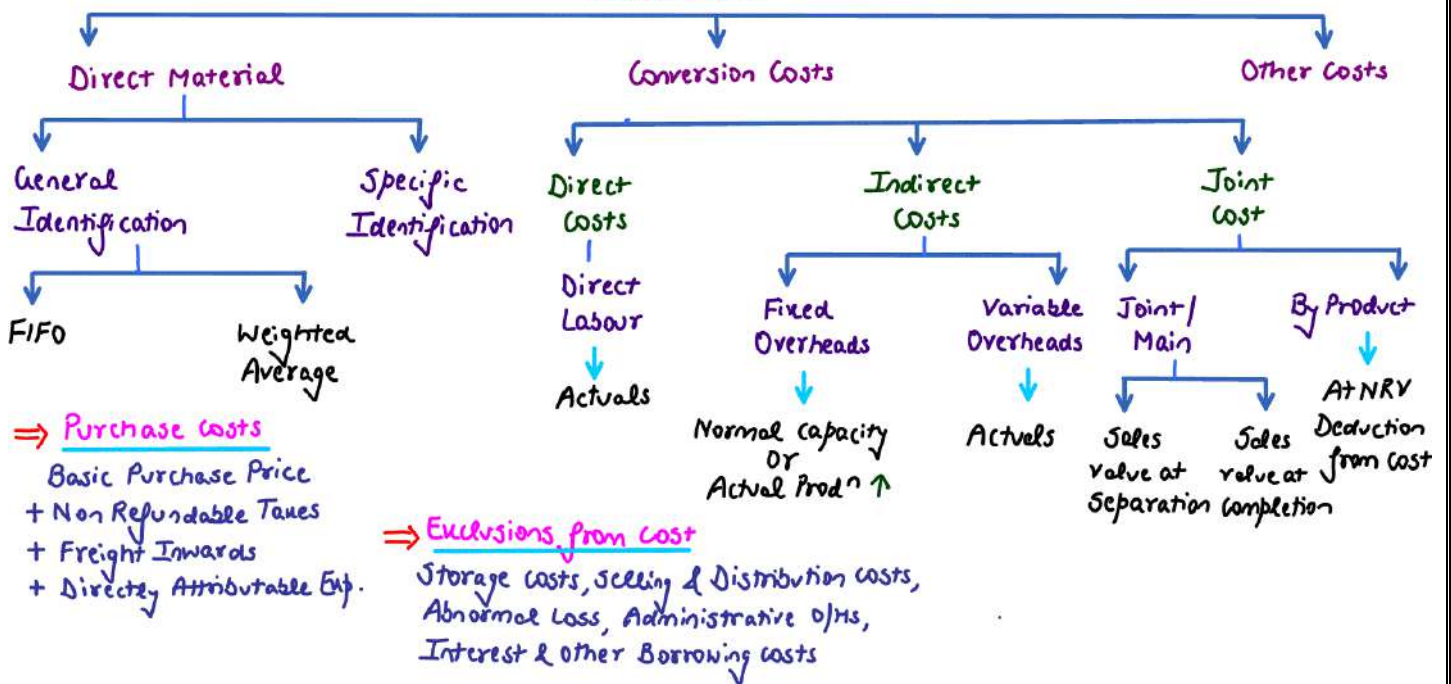 Direct Material
Conversion Costs
Other Costs
General
Identification
Specific
Identification
Direct
Costs
Indirect
Costs
Joint
Cost
FIFO
Weighted
Average
Direct
Labour
Actuals
Fixed
Overheads
Normal Capacity
Or
Actual Prodⁿ ↑
Variable
Overheads
Actuals
Joint/
Main
Sales
value at
Separation
Sales
value at
Completion
By Product
At NRV
Deduction
from Cost
⇒ Purchase Costs
Basic Purchase Price
+ Non Refundable Taxes
+ Freight Inwards
+ Directly Attributable Exp.
⇒ Exclusions from Cost
Storage Costs, Selling & Distribution Costs,
Abnormal Loss, Administrative O/Hs,
Interest & Other Borrowing Costs